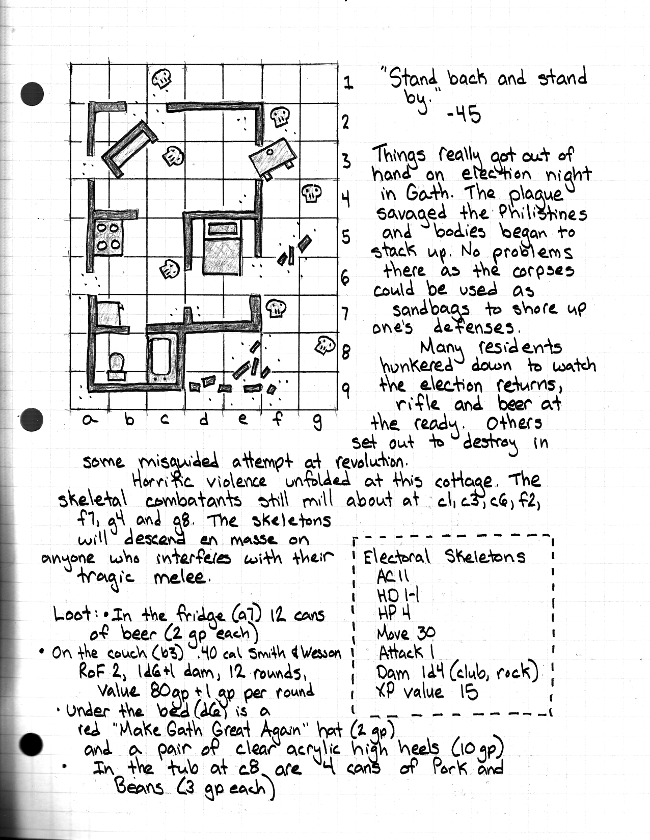 1
2
3
4
5
6
7
8
9
a b c d e f g
"Stand back and stand
by."
-45
Things really got out of
hand on election night
in Gath. The plague
savaged the Philistines
and bodies began to
stack up. No problems
there as the corpses
could be used as
sandbags to shore up
one's defenses.
Many residents
hunkered down to watch
the election returns,
rifle and beer at
the ready. Others
set out to destroy in
some misguided attempt at revolution.
Horrific violence unfolded at this cottage. The
skeletal combatants still mill about at c1, c3, c6, f2,
f7, g4 and g8. The skeletons
will descend en masse on
anyone who interferes with their
tragic melee.
Loot: • In the fridge (a7) 12 cans
of beer (2 gp each)
• On the couch (b3) .40 cal Smith & Wesson
RoF 2, 1d6+1 dam, 12 rounds,
Value 80gp +1 gp per round
• Under the bed (d6) is a
red "Make Gath Great Again" hat (2 gp)
and a pair of clear acrylic high heels (10 gp)
• In the tub at c8 are 4 cans of Pork and
Beans (3 gp each)
Electoral Skeletons
AC 11
HD 1-1
HP 4
Move 30
Attack 1
Dam 1d4 (club, rock)
XP value 15